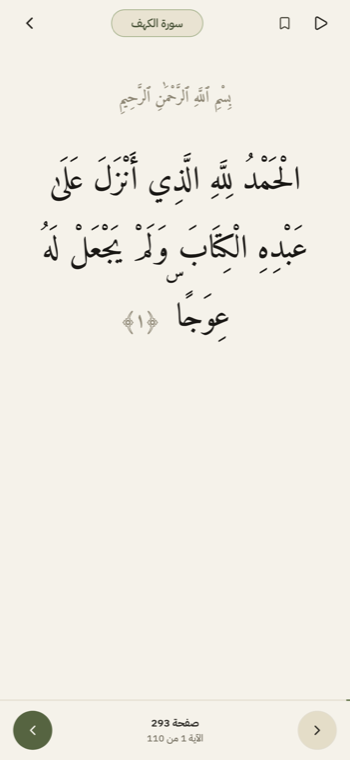 سورة الكهف
بِسْمِ ٱللَّهِ ٱلرَّحْمَٰنِ ٱلرَّحِيمِ
الْحَمْدُ لِلَّهِ الَّذِي أَنْزَلَ عَلَىٰ
عَبْدِهِ الْكِتَابَ وَلَمْ يَجْعَلْ لَهُ
عِوَجًا ۜ ﴿١﴾
صفحة 293
الآية 1 من 110